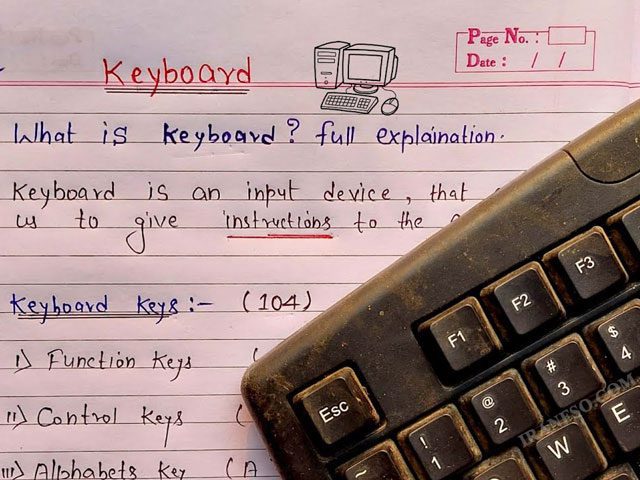 Page No. :
Date : / /
Keyboard
What is keyboard? full explaination.
Keyboard is an input device, that
us to give instructions to the
Keyboard Keys :- (104)
i) Function Keys (
ii) Control Keys (
iii) Alphabets Key (A
F1 F2 F3
Esc
! 1 @ 2 # 3 $ 4
~ W E
IRANESO.COM